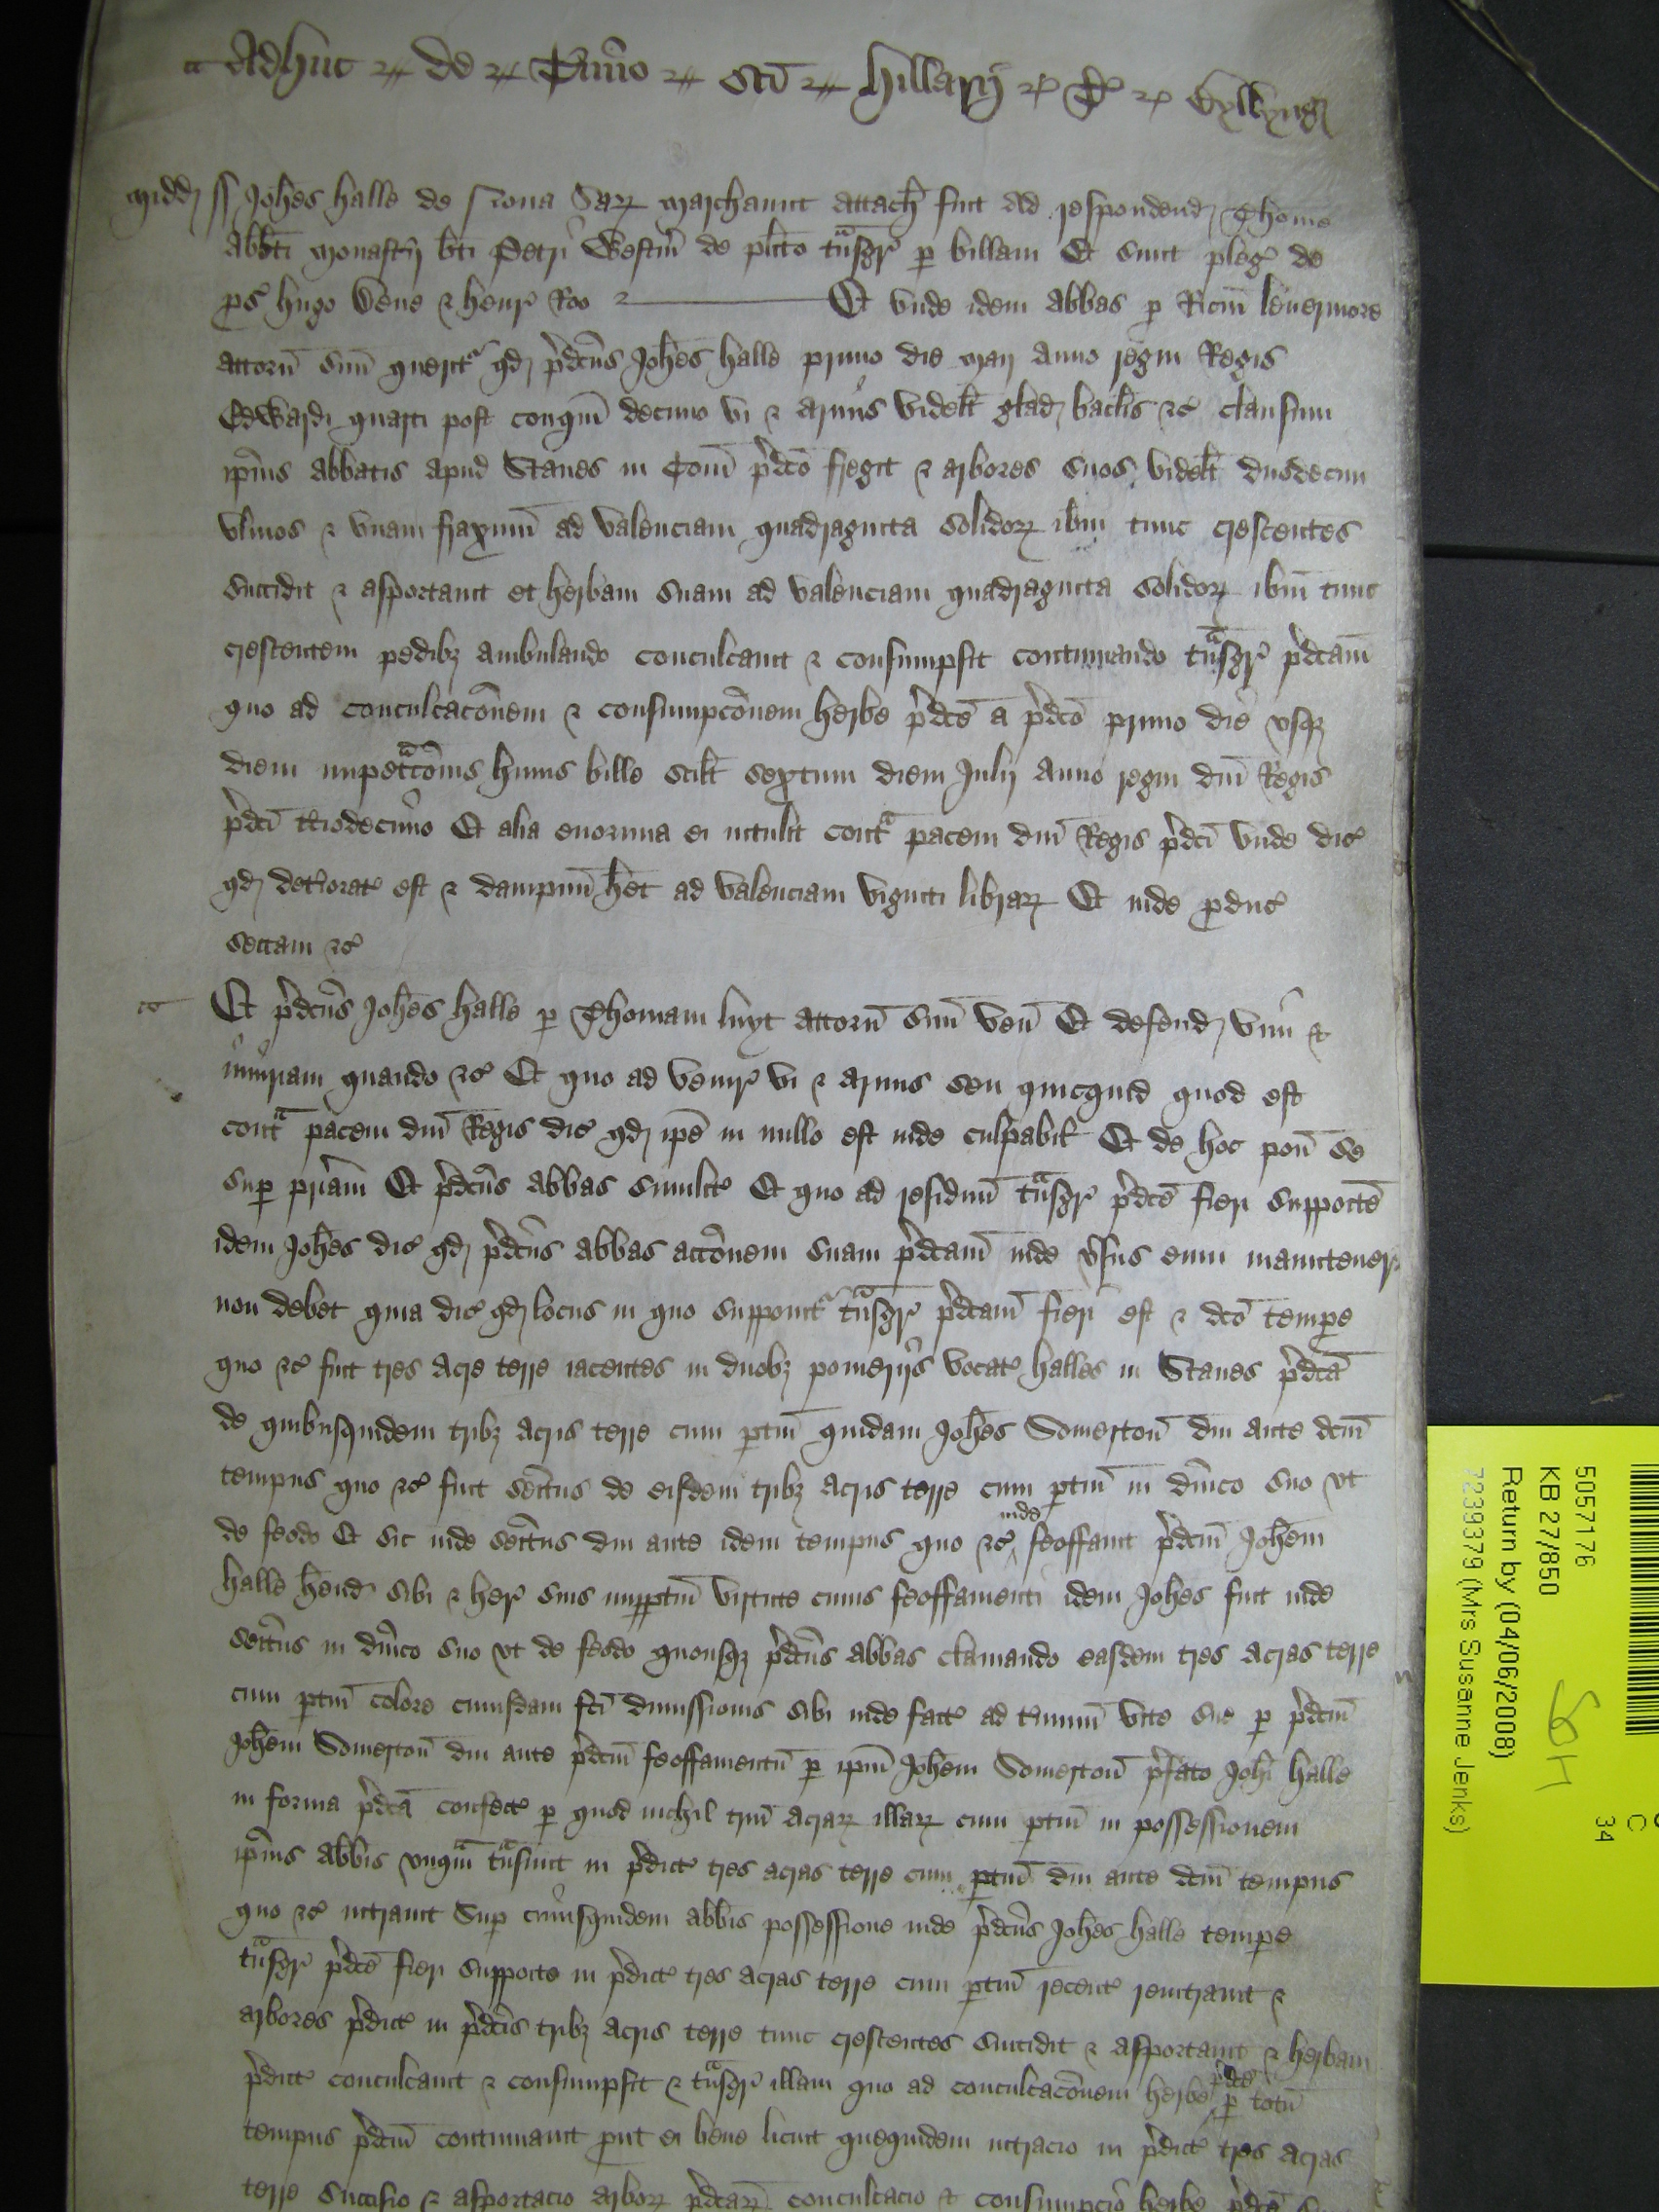 Adhuc de Timo Sci Hillarij
Midd ss Johes Halle de Noua Sar marchaunt attach fuit ad respondend Thome
Abbti monastij bti Petri Westm de plito tnsgr p billam Et sunt pleg de
ps Hugo Dene & Henr Roo Et vnde idem Abbas p Ricm Levermore
attorn suu querit qd pdcus Johes Halle primo die Maij anno regni Regis
Edwardi quarti post conqm decimo vi & armis videlt glad baclis &c clausum
ipius abbatis apud Stanes in Com pdco fregit & arbores suos videlt duodecim
vlmos & vnam fraxinu ad valenciam quadraginta solidor ibm tunc crescentes
succidit & asportauit et herbam suam ad valenciam quadraginta solidor ibm tunc
crescentem pedibz ambulando conculcauit & consumpsit continuando tnsgr pdcam
quo ad conculcacoem & consumpcoem herbe pdce a pdco primo die vsqz
diem impetracois huius bille scilt septum diem Julij anno regni dni Regis
pdci tciodecimo Et alia enormia ei intulit conta pacem dni Regis pdci vnde dic
qd detiorat est & dampnu het ad valenciam viginti librar Et inde pduc
sectam &c
Et pdcus Johes Halle p Thomam Luyt attorn suu ven Et defend vim &
iniuriam quando &c Et quo ad venir vi & armis seu quicquid quod est
conta pacem dni Regis dic qd ipe in nullo est inde culpabil Et de hoc pon se
sup priam Et pdcus abbas similit Et quo ad residuu tnsgr pdce fieri supposite
idem Johes dic qd pdcus abbas accoem suam pdcam inde vsus eum manutener
non debet quia dic qd locus in quo supponit tnsgr pdcam fieri est & dco tempe
quo &c fuit tres acre terre iacentes in duobz pomerijs vocat Halles in Stanes pdca
de quibusquidem tribz acris terre cum ptin quidam Johes Somerton diu ante dcm
tempus quo &c fuit seitus de eisdem tribz acris terre cum ptin in dnico suo vt
de feodo Et sic inde seitus diu ante idem tempus quo &c inde feoffauit pdcm Johem
Halle hend sibi & her suis imppetm virtute cuius feoffamenti idem Johes fuit inde
seitus in dnico suo vt de feodo quousqz pdcus abbas clamando easdem tres acras terre
cum ptin colore cuiusdam fci dimissionis sibi inde fact ad tminu vite sue p pdcm
Johem Somerton diu ante pdcm feoffamentu p ipm Johem Somerton pfato Johi Halle
in forma pdca confect p quod nichil triu acrar illar cum ptin in possessionem
ipius abbis vnqm tnsiuit in pdict tres acras terre cum ptin diu ante dcm tempus
quo &c intrauit Sup cuiusquidem abbis possessione inde pdcus Johes Halle tempe
tnsgr pdce fieri supposite in pdict tres acras terre cum ptin recent reintrauit &
arbores pdict in pdcis tribz acris terre tunc crescentes succidit & asportauit & herbam
pdict conculcauit & consumpsit & tnsgr illam quo ad conculcacoem herbe pdce p totu
tempus pdcm continuauit put ei bene licuit quequidem intracio in pdict tres acras
terre succisio & asportacio arbor pdcar conculcacio & consumpcio herbe pdce
5057176
KB 27/850
Return by (04/06/2008)
7239379 (Mrs Susanne Jenks)
34
C